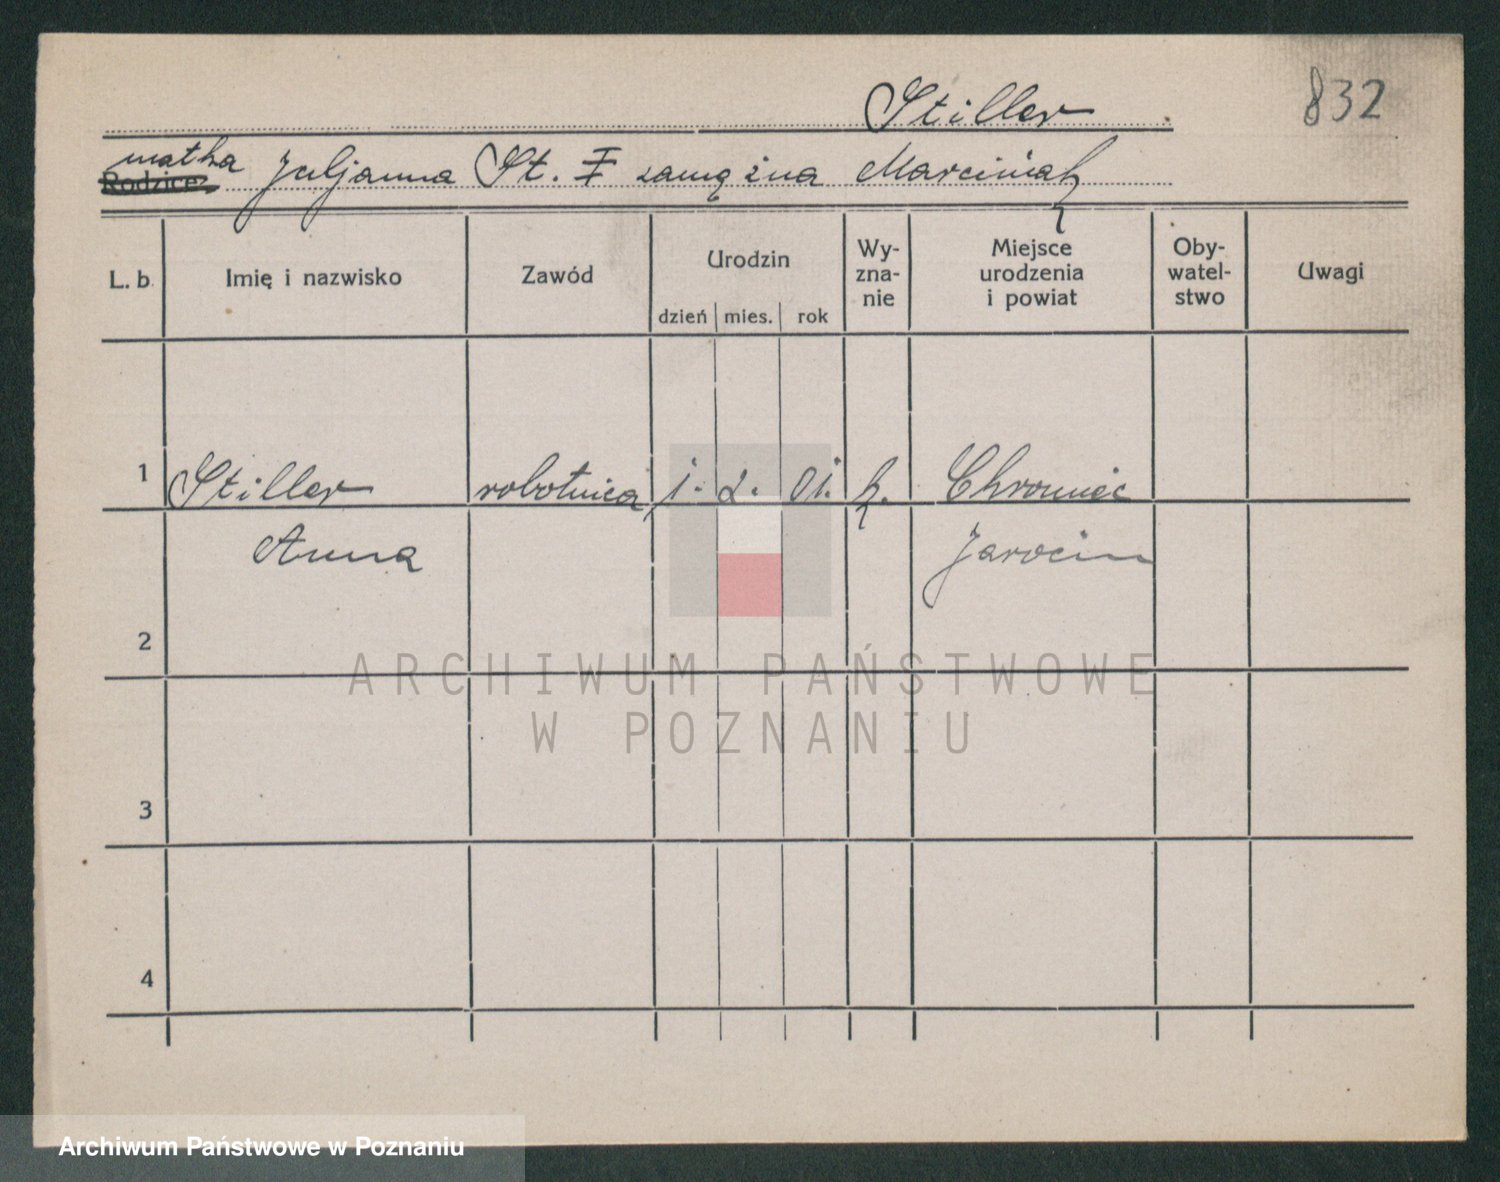 Stiller 832
matka
Rodzice Juljanna St. I zamężna Marciniak
L. b. Imię i nazwisko Zawód Urodzin Wy-
zna-
nie Miejsce
urodzenia
i powiat Oby-
watel-
stwo Uwagi
dzień mies. rok
1 Stiller robotnica 1. 2. 01. k.
Anna Jarocin
2
3
4
ARCHIWUM PAŃSTWOWE
W POZNANIU
Archiwum Państwowe w Poznaniu